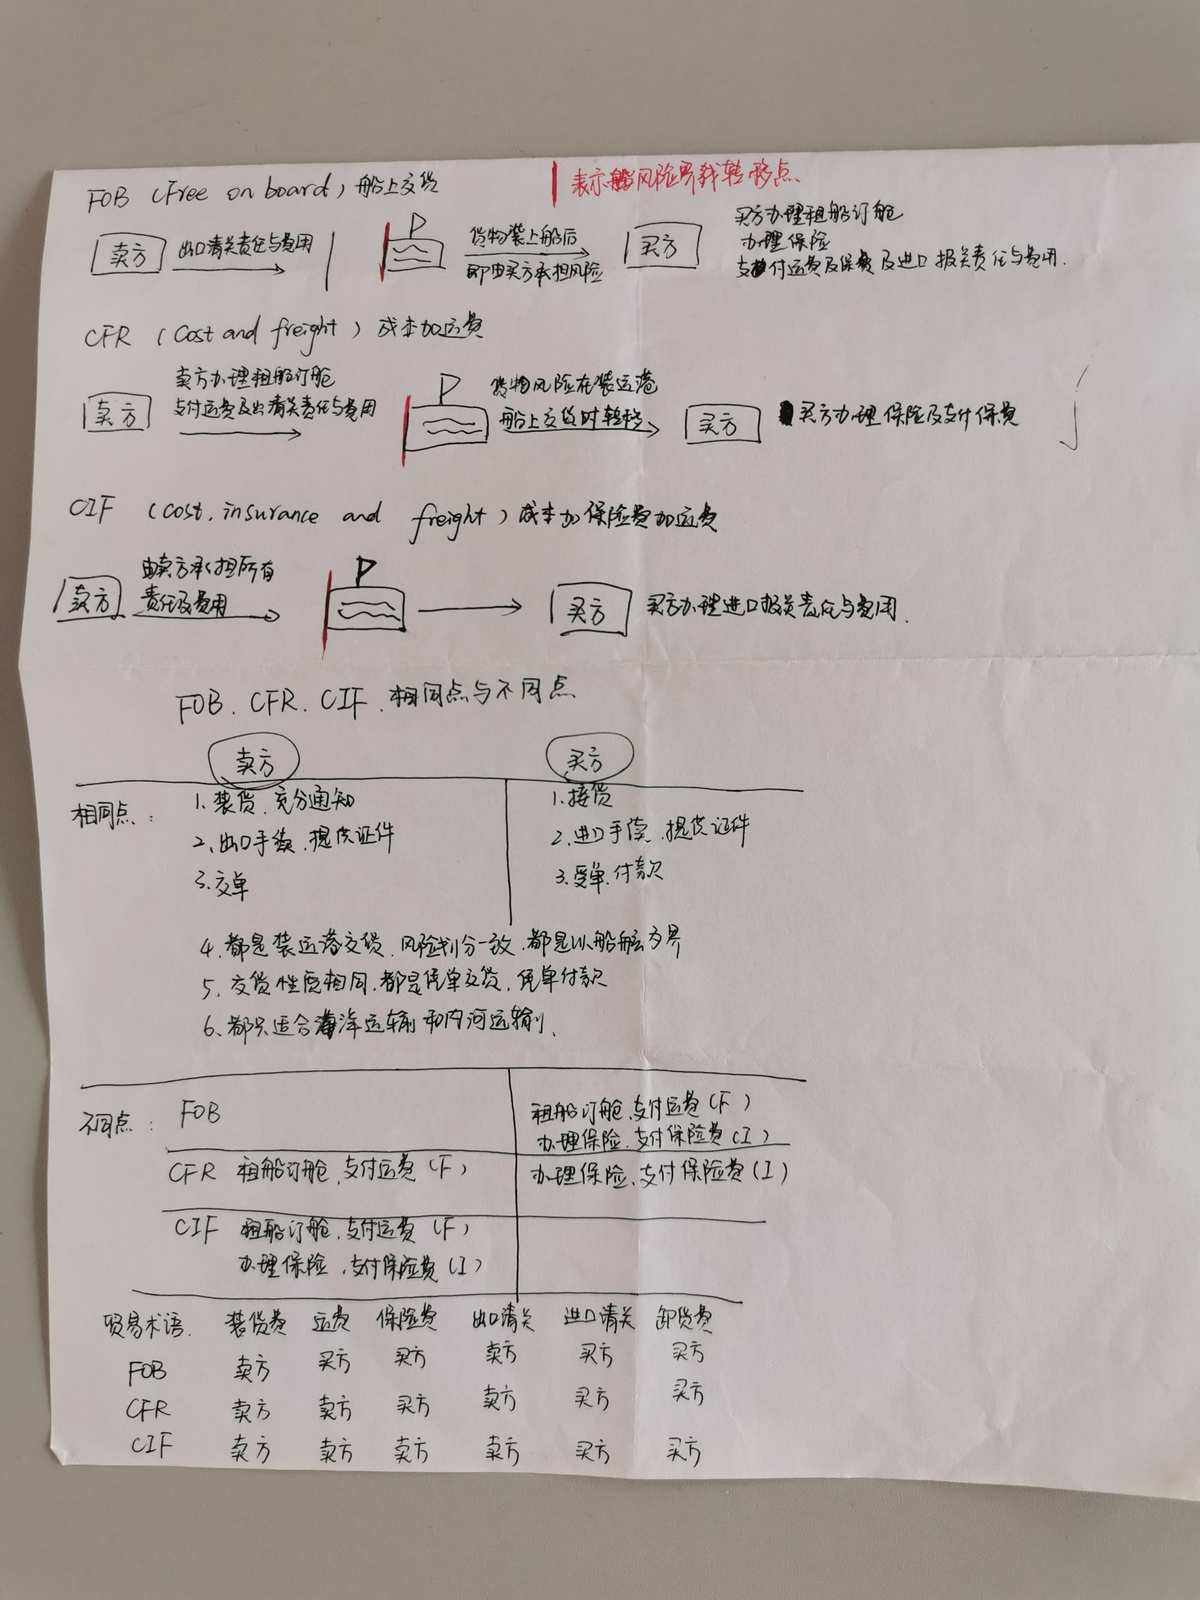 FOB (Free on board) 船上交货
表示船风险界线转移点
卖方 出口清关责任与费用
货物装上船后
即由买方承担风险
买方
买方办理租船订舱
办理保险
支付运费及保费及进口报关责任与费用.
CFR (Cost and freight) 成本加运费
卖方
卖方办理租船订舱
支付运费及出清关责任与费用
货物风险在装运港
船上交货时转移
买方 买方办理保险及支付保费
CIF (Cost, insurance and freight) 成本加保险费加运费
卖方
由卖方承担所有
责任及费用
买方 买方办理进口报关责任与费用.
FOB、CFR、CIF、相同点与不同点
卖方 买方
相同点:
1.装货、充分通知
2、出口手续、提供证件
3.交单
1.接货
2.进口手续、提供证件
3.受单、付款
4.都是装运港交货,风险划分一致,都是以船舷为界
5、交货性质相同,都是凭单交货,凭单付款
6、都只适合海洋运输和内河运输、
不同点: FOB 租船订舱、支付运费(F)
办理保险、支付保险费(I)
CFR 租船订舱、支付运费(F) 办理保险、支付保险费(I)
CIF 租船订舱、支付运费(F)
办理保险、支付保险费(I)
贸易术语. 装货费 运费 保险费 出口清关 进口清关 卸货费
FOB 卖方 买方 买方 卖方 买方 买方
CFR 卖方 卖方 买方 卖方 买方 买方
CIF 卖方 卖方 卖方 卖方 买方 买方